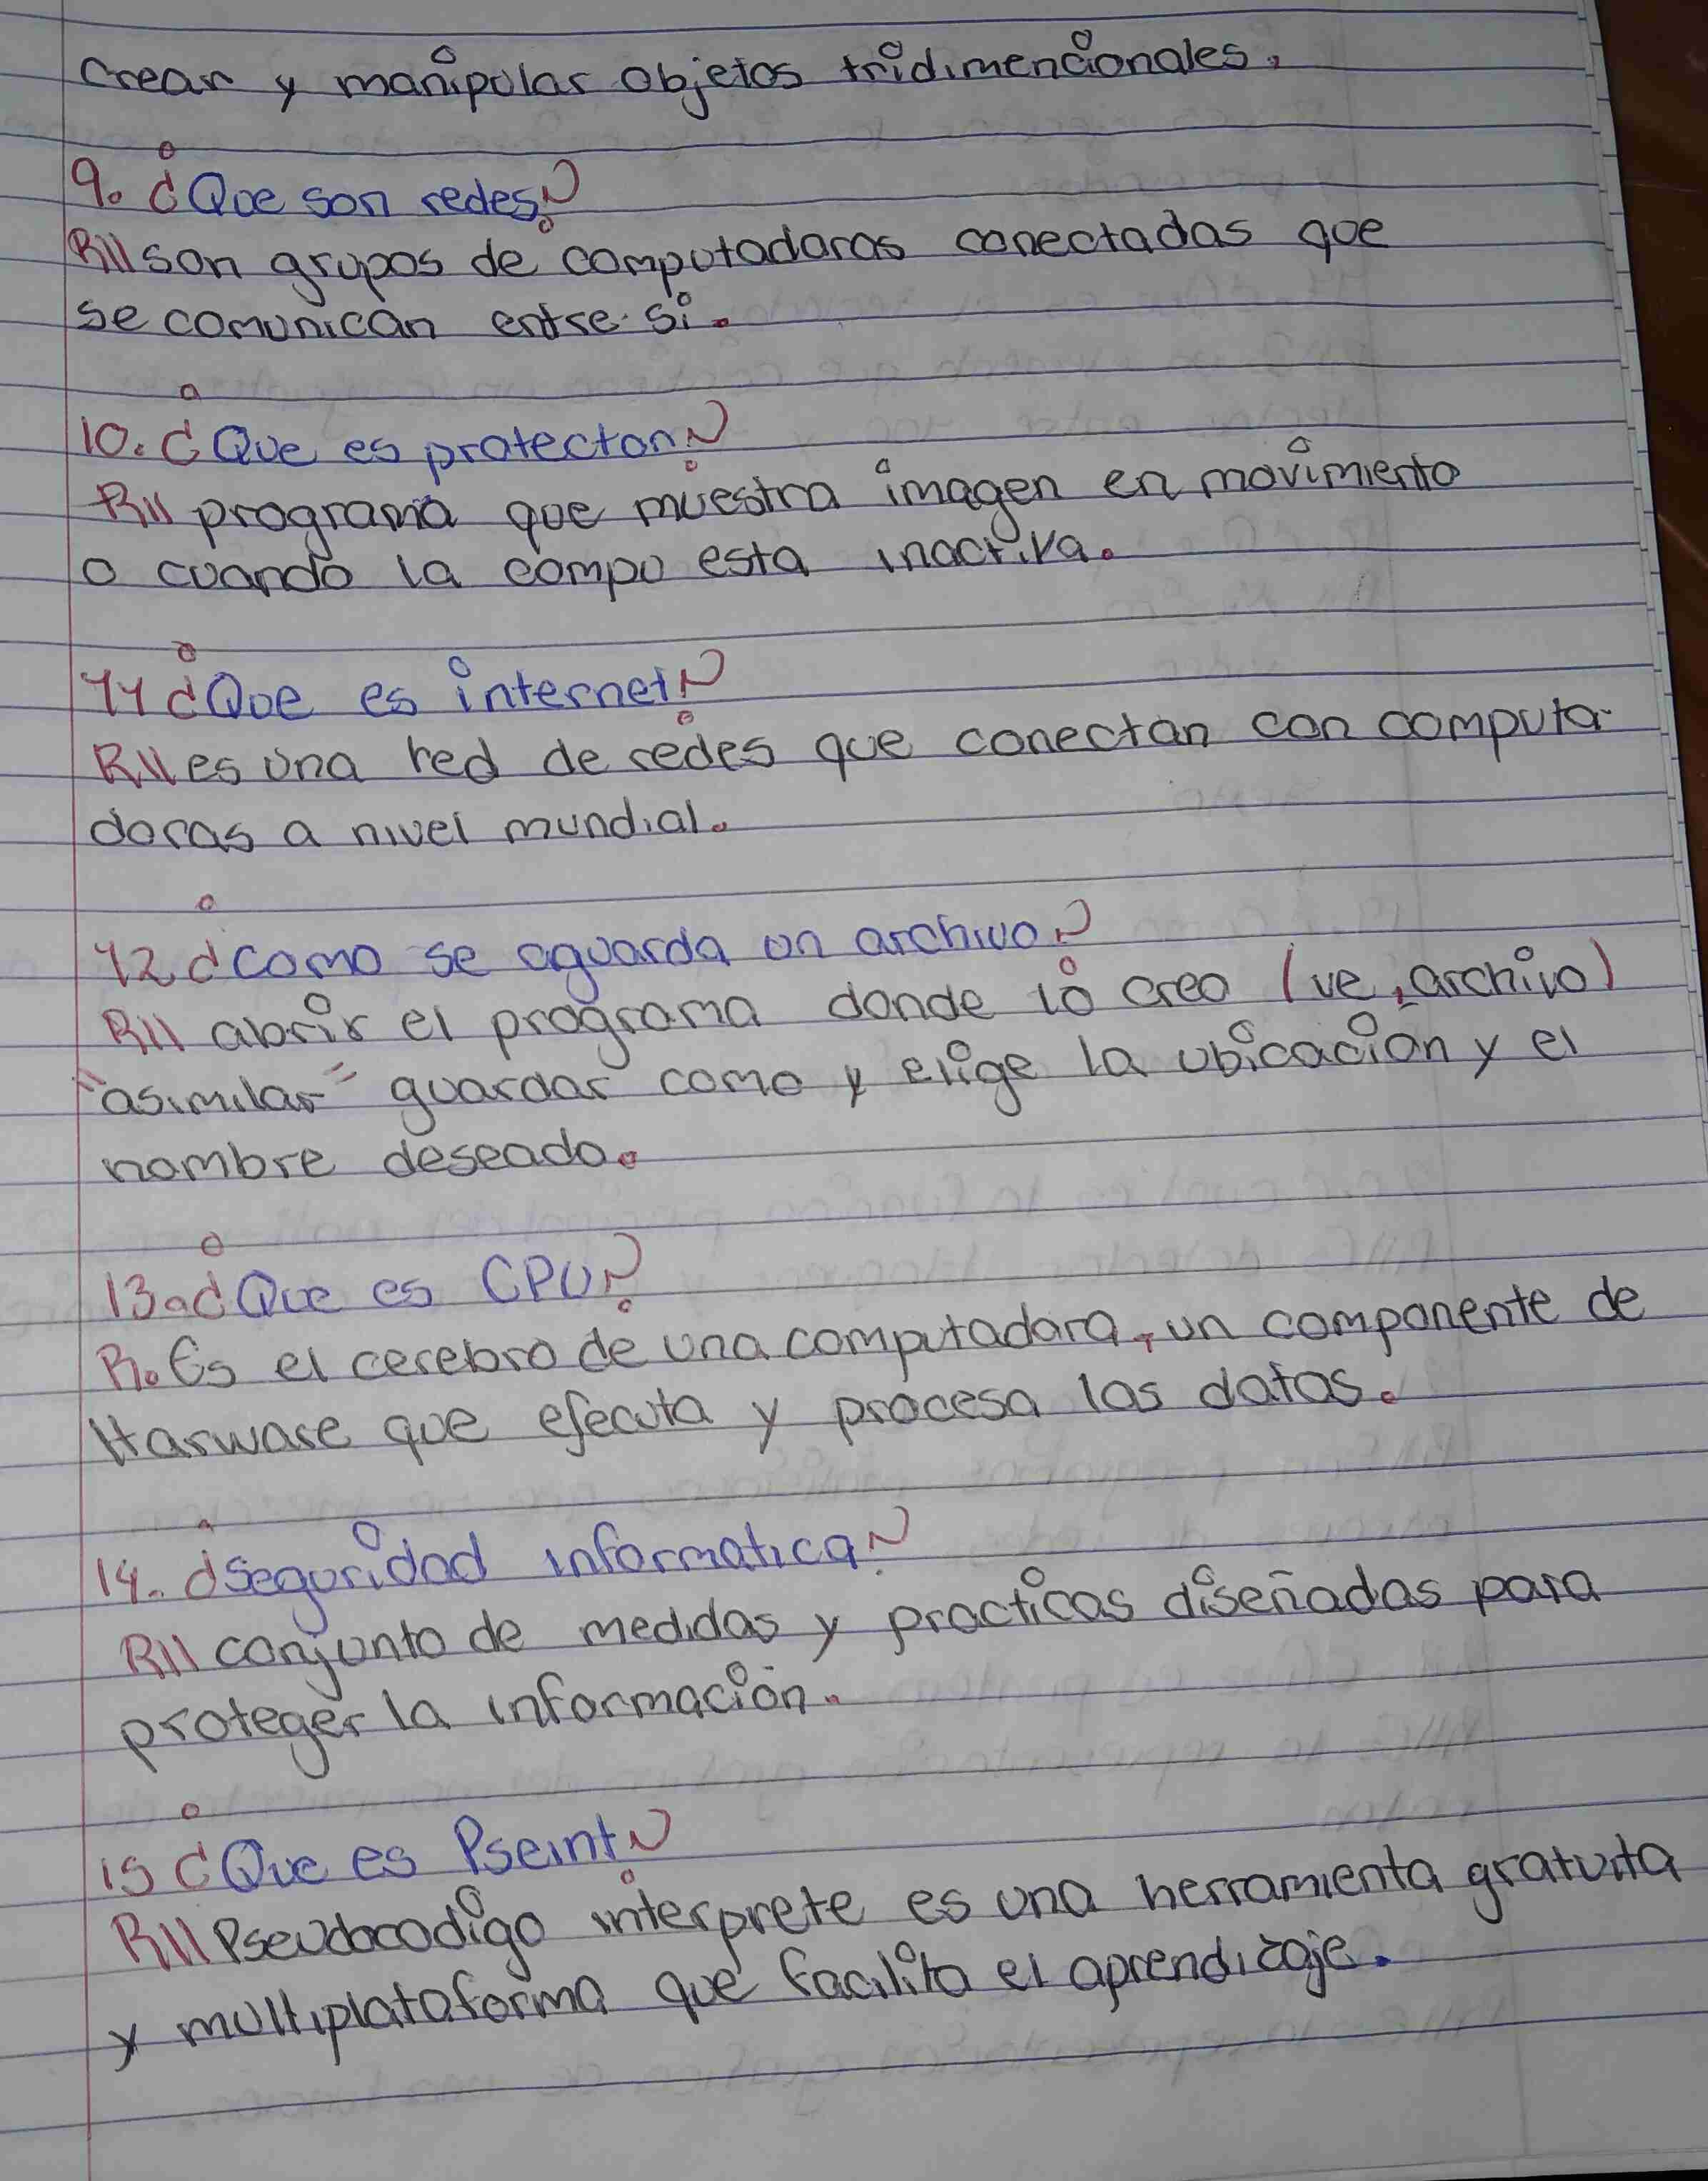 Crear y manipular objetos tridimencionales.
9. ¿Que son redes?
R// son grupos de computadoras conectadas que
se comunican entre si.
10. ¿Que es protector?
R// programa que muestra imagen en movimiento
o cuando la compu esta inactiva.
11 ¿Que es internet?
R// es una red de redes que conectan con computa-
doras a nivel mundial.
12 ¿como se aguarda un archivo?
R// abrir el programa donde lo creo (ve, archivo)
"asimilar" guardar como y elige la ubicación y el
nombre deseado.
13. ¿Que es CPU?
R. Es el cerebro de una computadora, un componente de
Harware que efecuta y procesa los datos.
14. ¿Seguridad informatica?
R// conjunto de medidas y practicas diseñadas para
proteger la información.
15 ¿Que es Pseint?
R// Pseudocodigo interprete es una herramienta gratuita
y multiplataforma que facilita el aprendizaje.